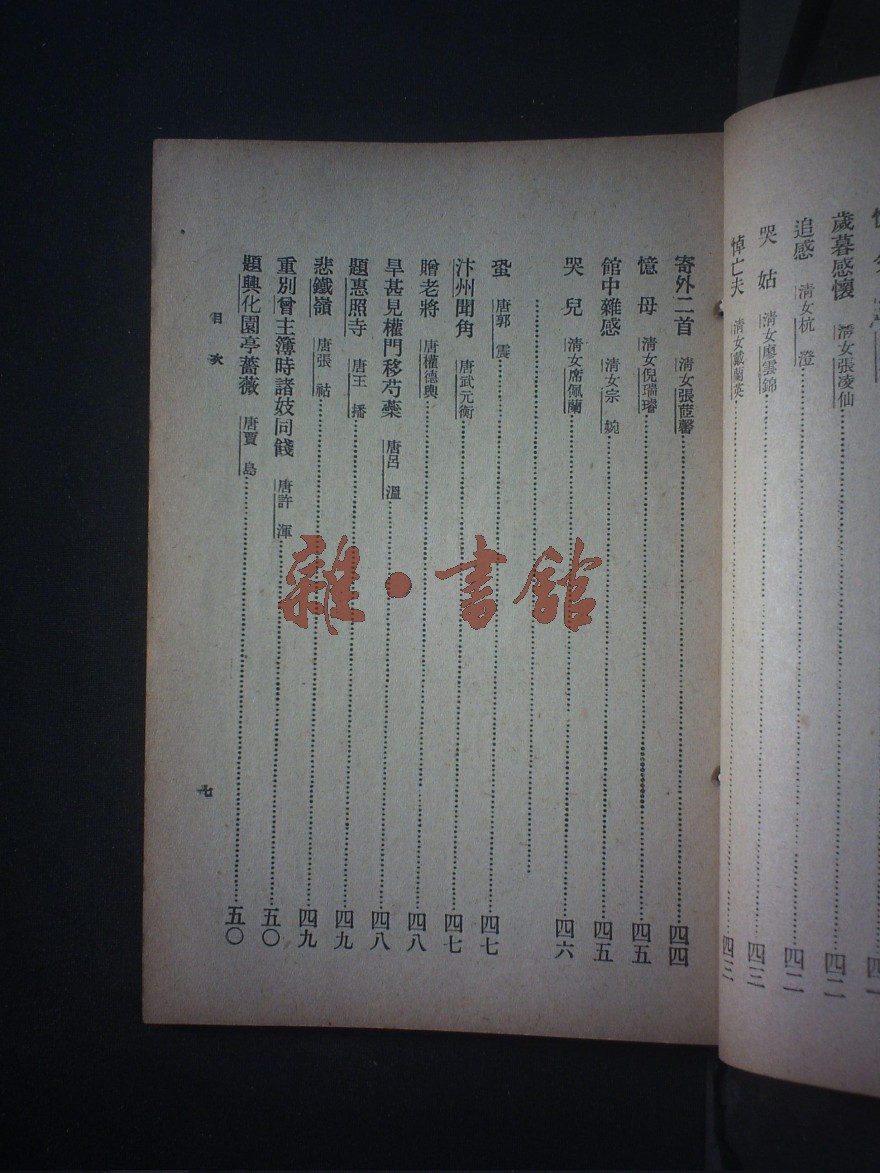 歲暮感懷 淸女張凌仙 四二
追感 淸女杭澄 四二
哭姑 淸女廖雲錦 四三
悼亡夫 淸女戴蘭英 四三
寄外二首 淸女張蒞馨 四四
憶母 淸女倪瑞璿 四五
館中雜感 淸女宗婉 四五
哭兒 淸女席佩蘭 四六
蛩 唐郭震 四七
汴州聞角 唐武元衡 四七
贈老將 唐權德輿 四八
旱甚見權門移芍藥 唐呂溫 四八
題惠照寺 唐王播 四九
悲鐵嶺 唐張祜 四九
重別曾主簿時諸妓同餞 唐許渾 五〇
題興化園亭薔薇 唐賈島 五〇
目次
七
雜·書館